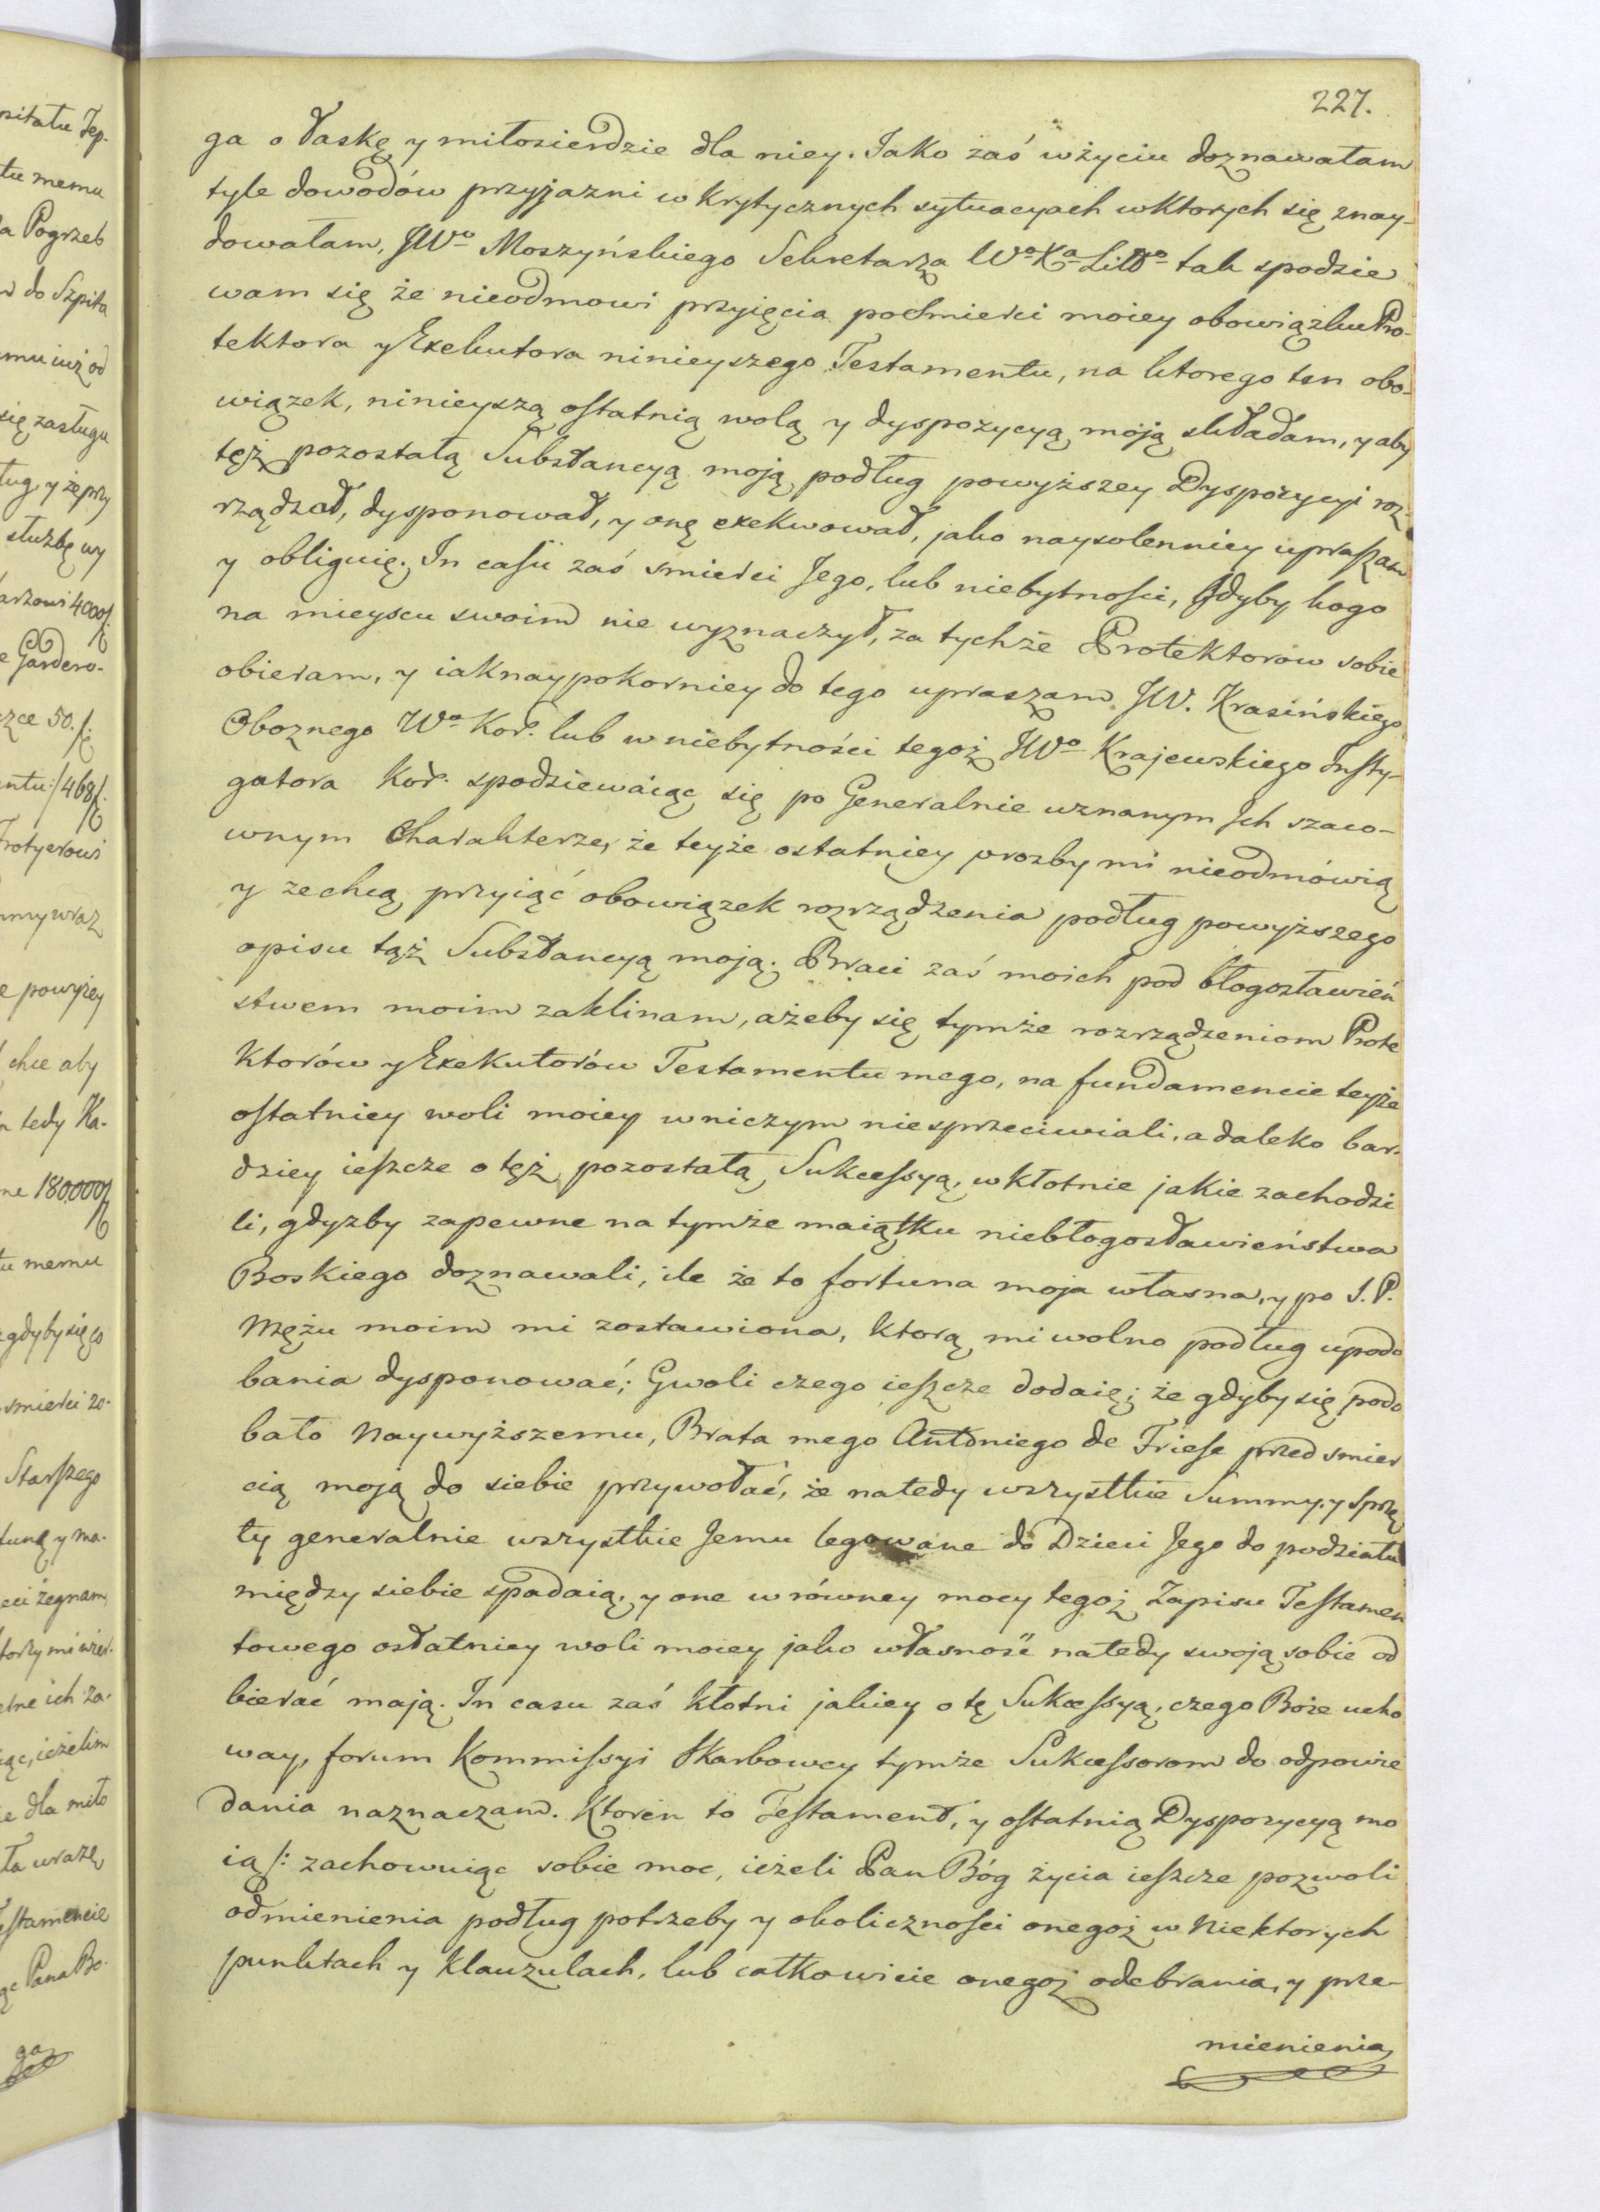 227.
ga o łaskę y miłosierdzie dla niey. Jako zaś w życiu doznawałam
tyle dowodów przyjazni w krytycznych sytuacyach wktorych się znay-
dowałam, JWo Moszyńskiego Sekretarza Wo Ka Litto tak spodzie
wam się że nieodmowi przyjęcia pośmierci moiey obowiązku Pro-
tektora y Exekutora ninieyszego Testamentu, na ktorego ten obo-
wiązek, ninieyszą ostatnią wolą y dyspozycyą moją składam, y aby
tęż pozostałą Substancyą moją podług powyższey Dyspozycyi roz-
rządzał, dysponował, y onę exekwował, jako naysolenniey upraszam
y obliguię. In casu zaś śmierci Jego, lub niebytności, Gdyby kogo
na mieyscu swoim nie wyznaczył, za tychże Protektorów sobie
obieram, y iaknaypokorniey do tego upraszam JW. Krasińskiego
Oboznego Wo Kor. lub w niebytności tegoż JWo Krajewskiego Insty-
gatora Kor. spodziewaiąc się po Generalnie uznanym Ich szaco-
wnym Charakterze, że teyże ostatniey prozby mi nieodmówią
y zechcą przyiąć obowiązek rozrządzenia podług powyższego
opisu tąż Substancyą moją. Braci zaś moich pod błogosławień
stwem moim zaklinam, ażeby się tymże rozrządzeniom Prote
ktorów y Exekutorów Testamentu mego, na fundamencie teyże
ostatniey woli moiey w niczym niesprzeciwiali, a daleko bar-
dziey ieszcze o tęż pozostałą Sukcessyą, w kłotnie jakie zachodzi
li, gdyzby zapewne na tymże maiątku niebłogosławieństwa
Boskiego doznawali, ile że to fortuna moja własna, y po S.P.
Mężu moim mi zostawiona, ktorą mi wolno podług upodo
bania dysponować; Gwoli czego ieszcze dodaię; że gdyby się podo
bało Naywyższemu, Brata mego Antoniego de Friese przed smier
cią moją do siebie przywołać, że natedy wszystkie Summy y sprzę
ty generalnie wszystkie Jemu legowane do Dzieci Jego do podziału
między siebie spadaią, y one w równey mocy tegoż Zapisu Testamen
towego ostatniey woli moiey jako własność natedy swoją sobie od
bierać mają. In casu zaś kłotni jakiey o tę Sukcessyą, czego Boże ucho
way, forum Kommissyi Skarbowey tymże Sukcessorom do odpowie
dania naznaczam. Ktoren to Testament, y ostatnią Dyspozycyą mo
ią /: zachowuiąc sobie moc, ieżeli Pan Bóg życia ieszcze pozwoli
odmienienia podług potrzeby y okoliczności onegoż w Niektorych
punktach y Klauzulach, lub całkowicie onegoż odebrania, y prze-
mienienia